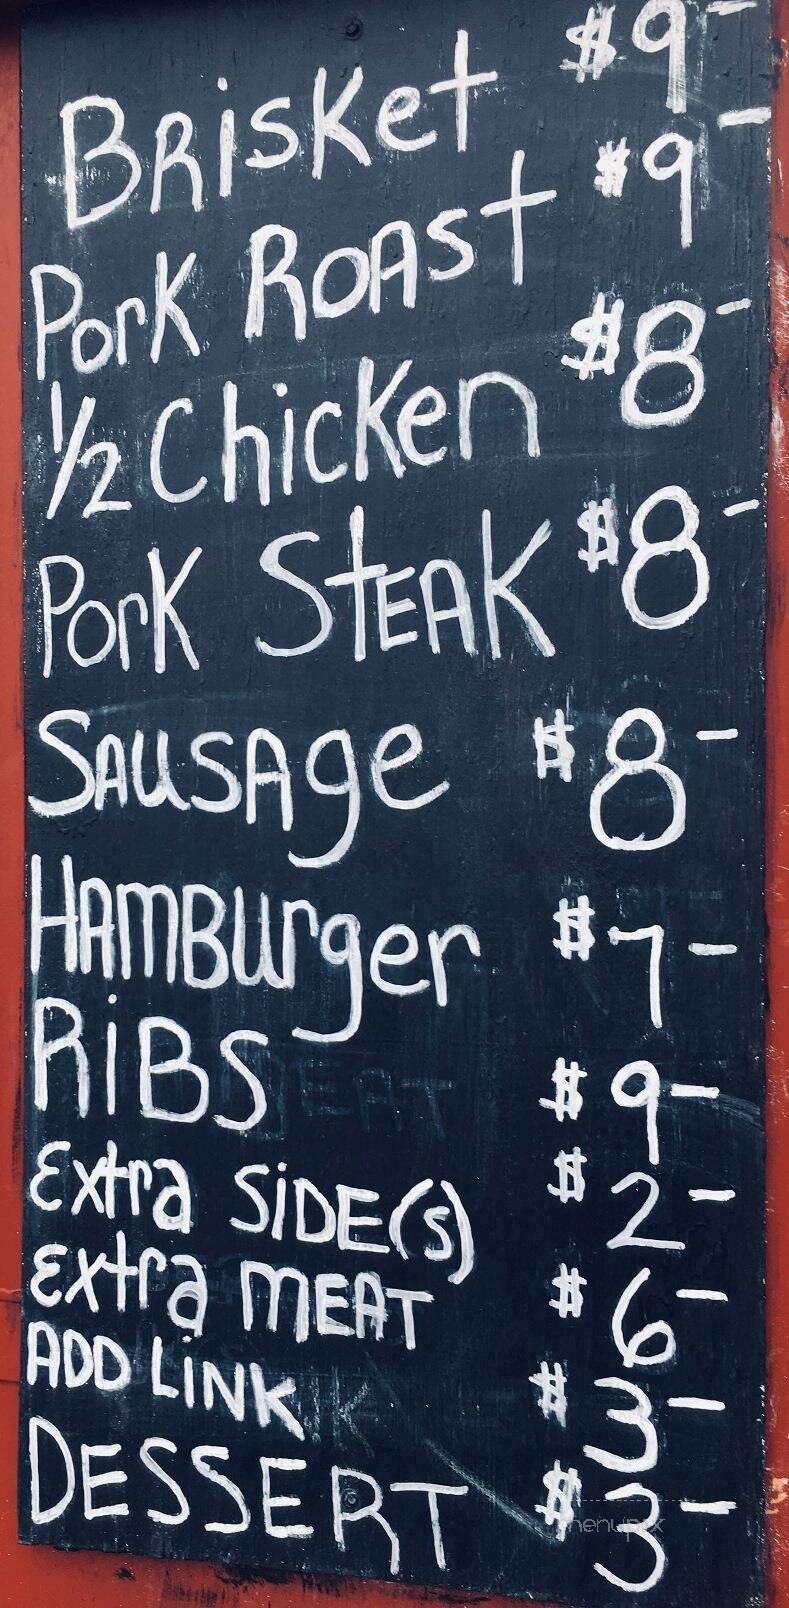 Brisket $9-
Pork Roast $9-
1/2 Chicken $8-
Pork Steak $8-
Sausage $8-
Hamburger $7-
Ribs $9-
Extra Side(s) $2-
Extra Meat $6-
Add Link $3-
Dessert $3-
menupix